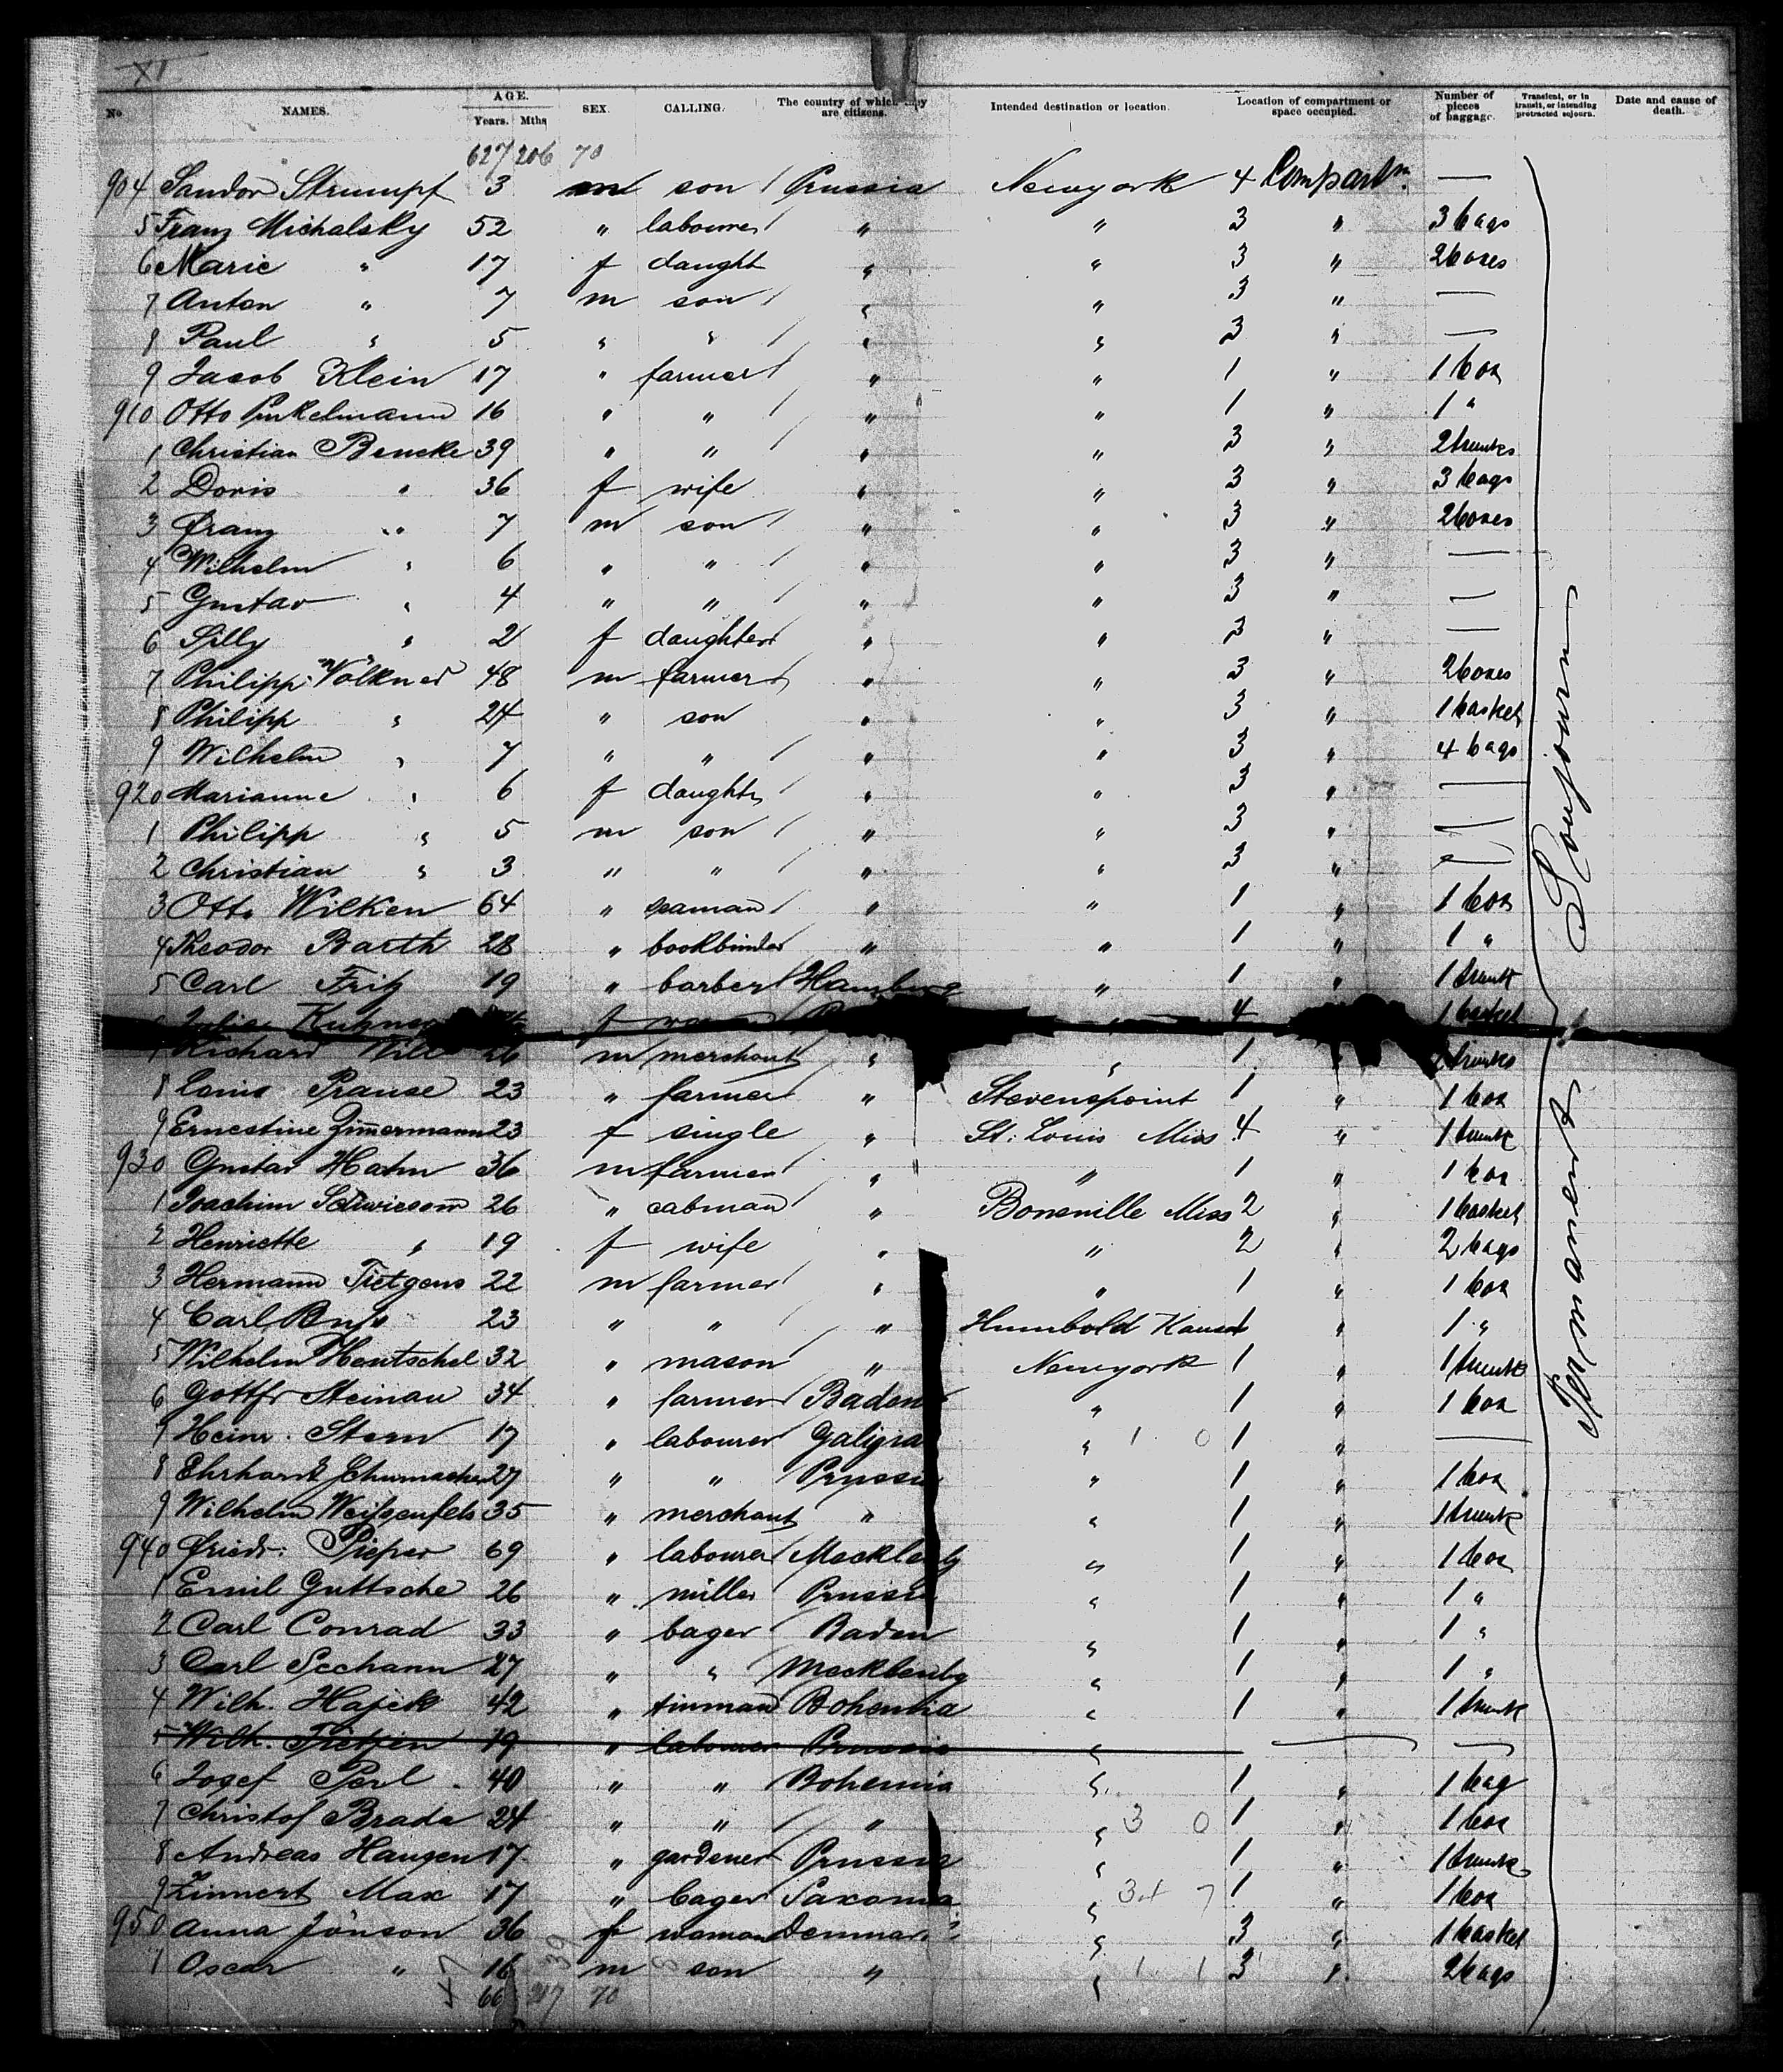 XI
No. NAMES. AGE. Years. Mths SEX. CALLING. The country of which they are citizens. Intended destination or location. Location of compartment or space occupied. Number of pieces of baggage. Transient, or in transit, or intending protracted sojourn. Date and cause of death.
627 206 70
904 Sandor Strumpf 3 m son Prussia Newyork 4 Compartm. —
5 Franz Michalsky 52 " labourer " " 3 " 3 bags
6 Marie " 17 f daught " " 3 " 2 boxes
7 Anton " 7 m son " " 3 " —
8 Paul " 5 " " " " 3 " —
9 Jacob Klein 17 " farmer " " 1 " 1 box
910 Otto Pinkelmann 16 " " " " 1 " 1 "
1 Christian Bencke 39 " " " " 3 " 2 trunks
2 Doris " 36 f wife " " 3 " 3 bags
3 Franz " 7 m son " " 3 " 2 boxes
4 Wilhelm " 6 " " " " 3 " —
5 Gustav " 4 " " " " 3 " —
6 Silly " 2 f daughter " " 3 " —
7 Philipp Völkner 48 m farmer " " 3 " 2 boxes
8 Philipp " 24 " son " " 3 " 1 basket
9 Wilhelm " 7 " " " " 3 " 4 bags
920 Marianne " 6 f daughter " " 3 " —
1 Philipp " 5 m son " " 3 " —
2 Christian " 3 " " " " 3 " —
3 Otto Wilken 64 " seaman " " 1 " 1 box
4 Theodor Barth 28 " bookbinder " " 1 " 1 "
5 Carl Fritz 19 " barber Hamburg " 1 " 1 trunk
f 4 1 basket
Richard 26 m merchant " " 1 " trunks
8 Louis Prause 23 " farmer " Stevenspoint 1 " 1 box
9 Ernestine Zimmermann 23 f single " St. Louis Miss 4 " 1 trunk
930 Gustav Hahn 36 m farmer " " 1 " 1 box
1 Joachim 26 " cabman " Boneville Miss 2 " 1 basket
2 Henriette " 19 f wife " " 2 " 2 bags
3 Hermann Tietgens 22 m farmer " " 1 " 1 box
4 Carl 23 " " " Humbold Kansas 1 " 1 "
5 Wilhelm Hentschel 32 " mason " Newyork 1 " 1 trunk
6 Gottfr Steinau 34 " farmer Baden " 1 " 1 box
7 Heinr. Stern 17 " labourer Galizia " 1 0 1 " —
8 Ehrhardt Schumacher 27 " " Prussia " 1 " 1 box
9 Wilhelm Weissenfels 35 " merchant " " 1 " 1 trunk
940 Friedr. Pieper 69 " labourer Mecklenbg " 1 " 1 box
1 Emil Guttsche 26 " miller Prussia " 1 " 1 "
2 Carl Conrad 33 " bager Baden " 1 " 1 "
3 Carl Seehann 27 " " Mecklenbg " 1 " 1 "
4 Wilh. Hajek 42 " tinman Bohemia " 1 " 1 trunk
5 Wilh. Tietjen 19 " labourer Prussia " — —
6 Josef Perl 40 " " Bohemia " 1 " 1 bag
7 Christof Brada 24 " " " " 3 0 1 " 1 box
8 Andreas Haugen 17 " gardener Prussia " 1 " 1 trunk
9 Linnert Max 17 " bager Saxonia " 34 7 1 " 1 box
950 Anna Jönson 36 f woman Denmark " 3 " 1 basket
1 Oscar " 16 m son " " 1 1 3 " 2 bags
66 217 70
Permanent Soujourn